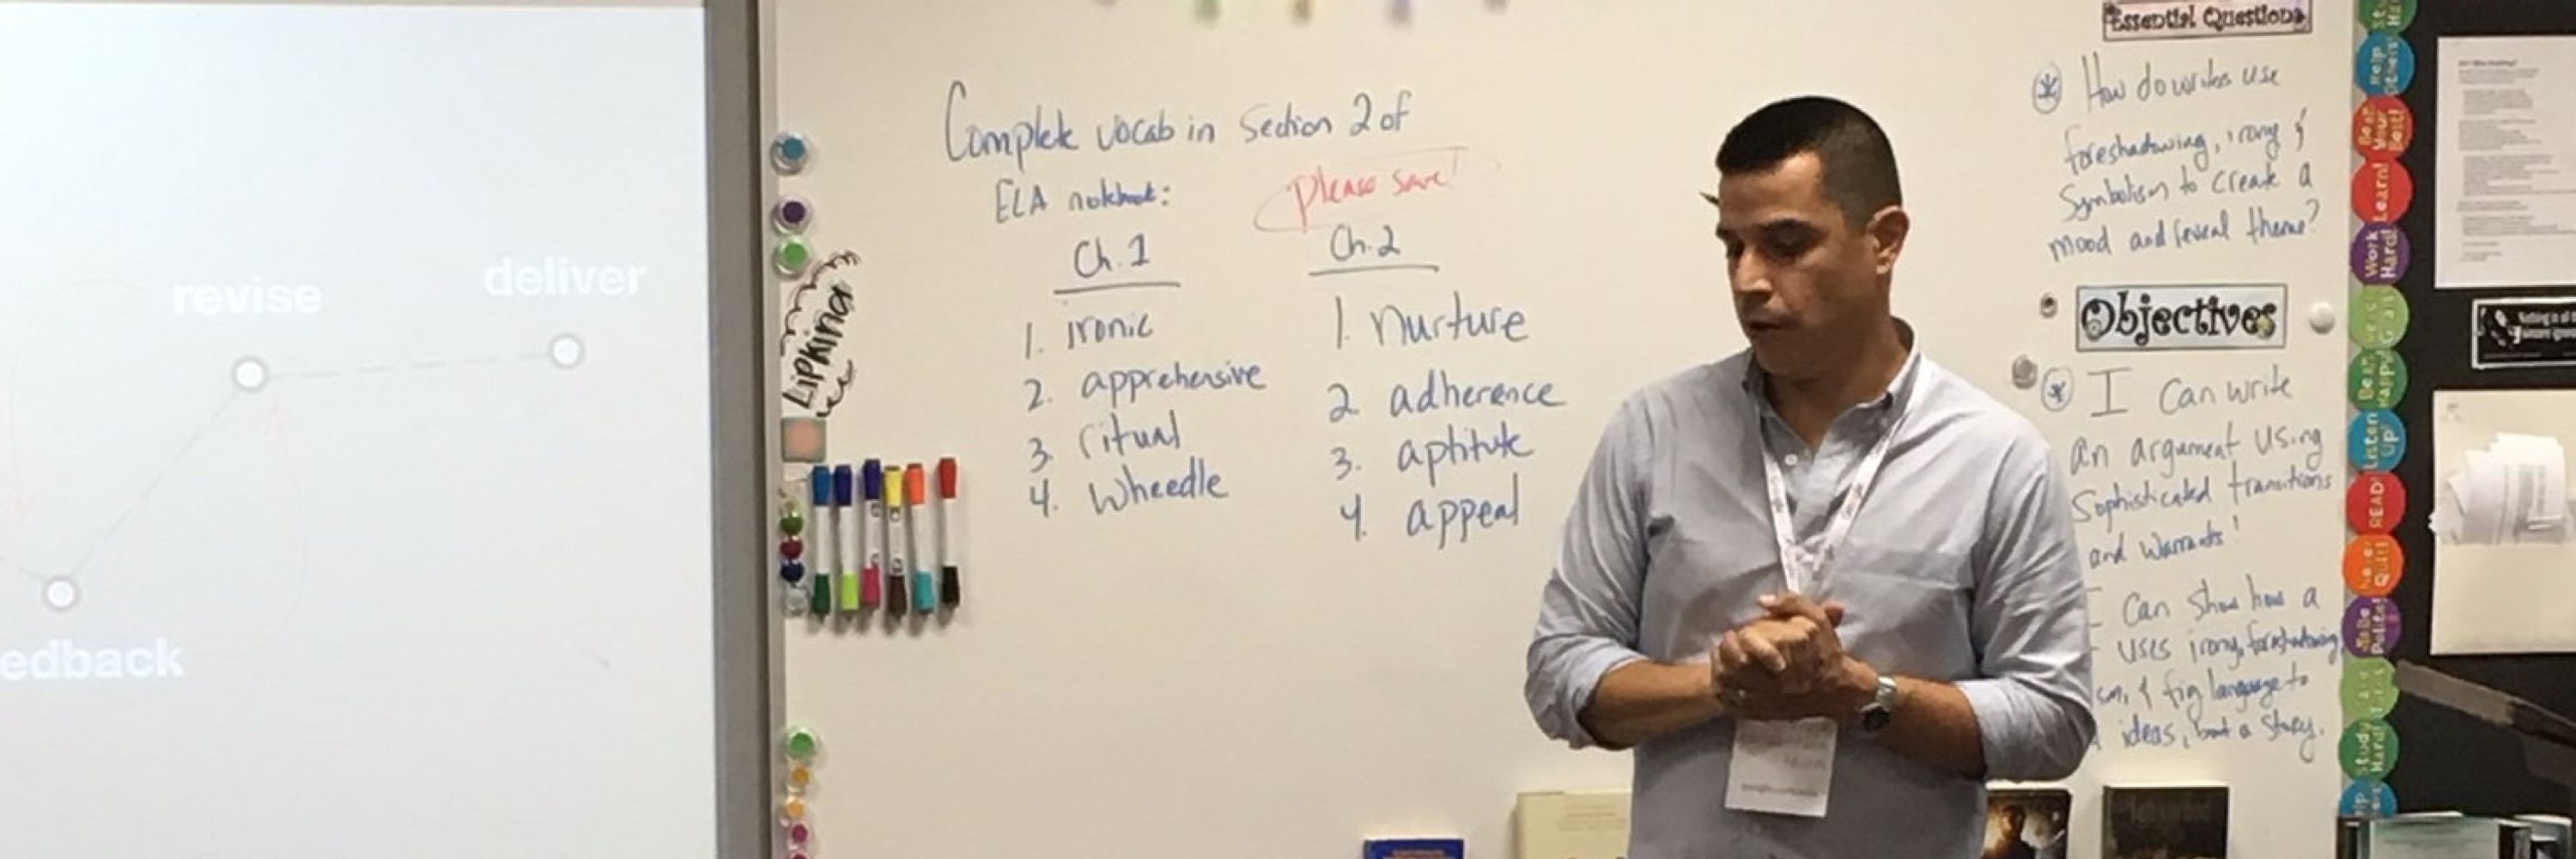 revise
deliver
edback
Lipkind
Complete vocab in Section 2 of
ELA notebook:
Please save!
Ch. 1
1. ironic
2. apprehensive
3. ritual
4. wheedle
Ch. 2
1. Nurture
2. adherence
3. aptitude
4. appeal
Essential Questions
How do writers use
foreshadowing, irony &
symbolism to create a
mood and reveal theme?
Objectives
I can write
an argument using
Sophisticated transitions
and warrants!
can show how a
uses irony, foreshadowing,
sm, & fig language to
ideas, but a story.
Help Others!
Be at Your Best!
Learn!
Work Hard!
Listen Up!
READ!
Study Hard!